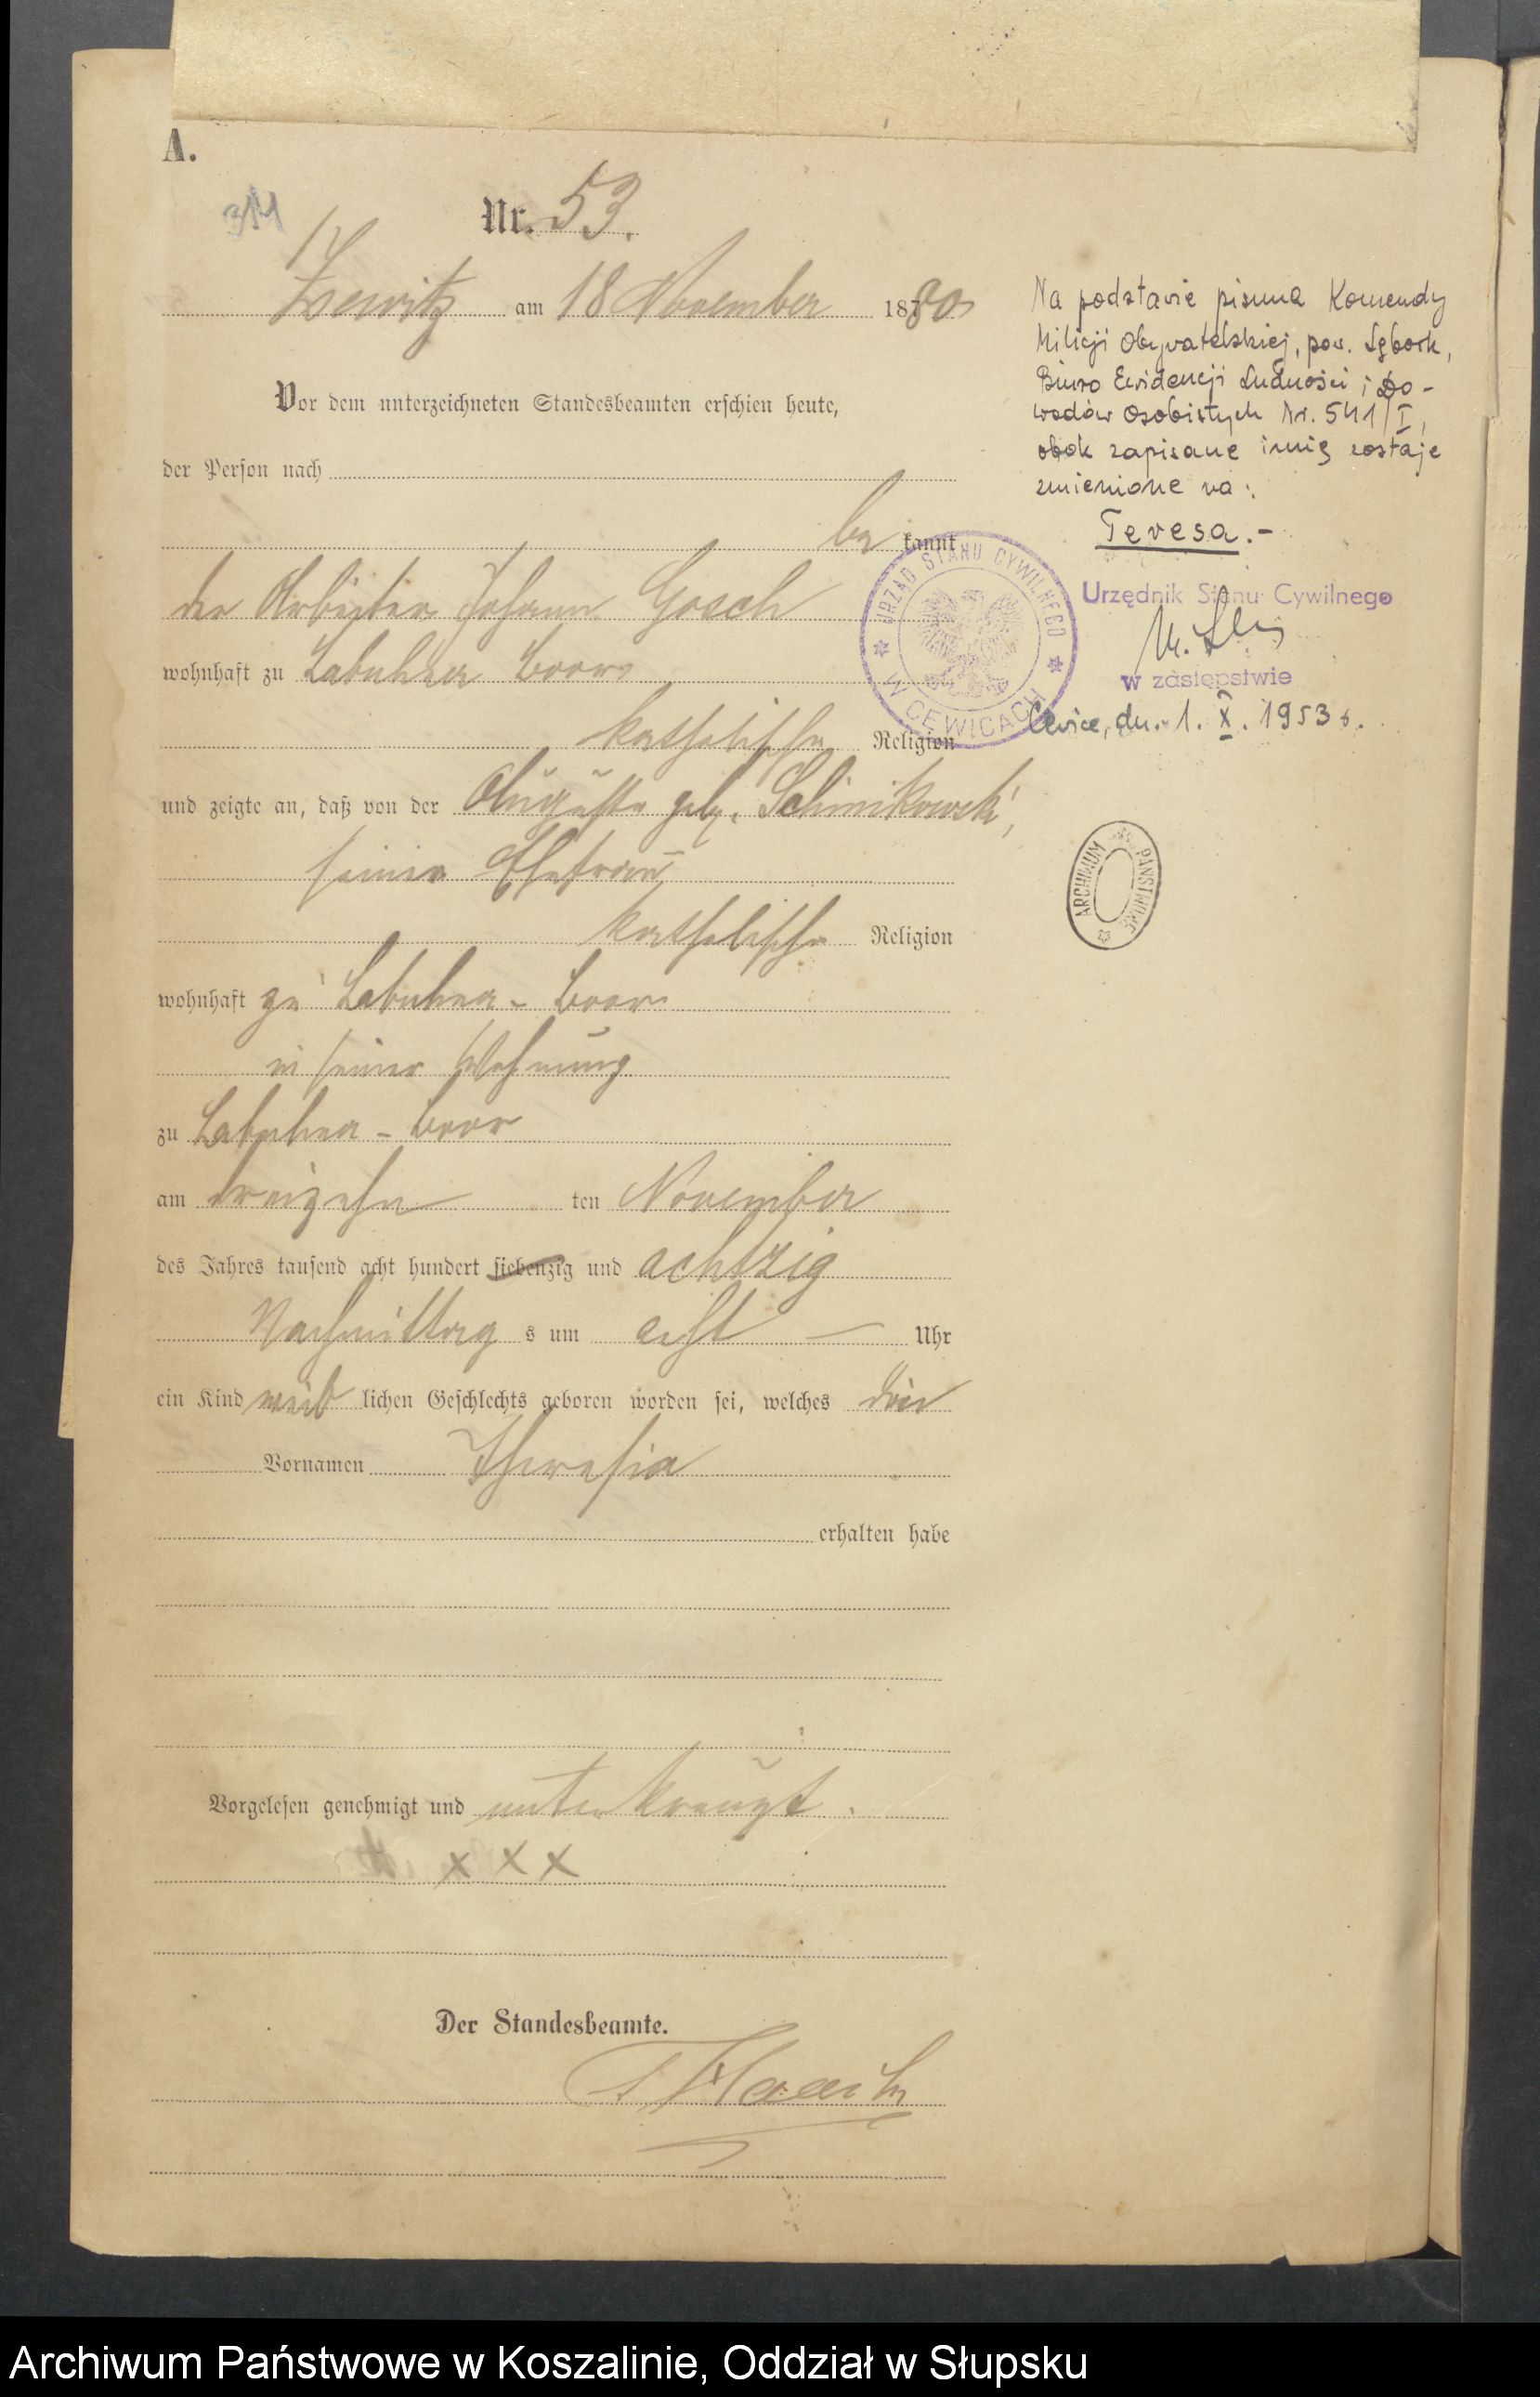 A.
314
Nr. 53.
Zewitz am 18 November 1880
Vor dem unterzeichneten Standesbeamten erschien heute,
der Person nach
be kannt
der Arbeiter Johann Gosch
wohnhaft zu Labuhner
katholischer Religion
und zeigte an, daß von der Auguste geb. Schimikowski,
seiner Ehefrau
katholischer Religion
wohnhaft zu Labuhner-
in seiner Wohnung
zu Labuhner-
am dreizehn ten November
des Jahres tausend acht hundert siebenzig und achtzig
Nachmittag s um acht Uhr
ein Kind weib lichen Geschlechts geboren worden sei, welches den
Vornamen Theresia
erhalten habe
Vorgelesen genehmigt und unterkreuzt.
x x x
Der Standesbeamte.
Na podstawie pisma Komendy
Milicji Obywatelskiej, pow. Lębork,
Biuro Ewidencji Ludności i Do-
wodów Osobistych Nr. 541/I,
obok zapisane imię zostaje
zmienione na:
Teresa.-
Urzędnik Stanu Cywilnego
w zastępstwie
Cewice, dn. 1. X. 1953 r.
URZĄD STANU CYWILNEGO
W CEWICACH
ARCHIWUM PAŃSTWOWE
Archiwum Państwowe w Koszalinie, Oddział w Słupsku